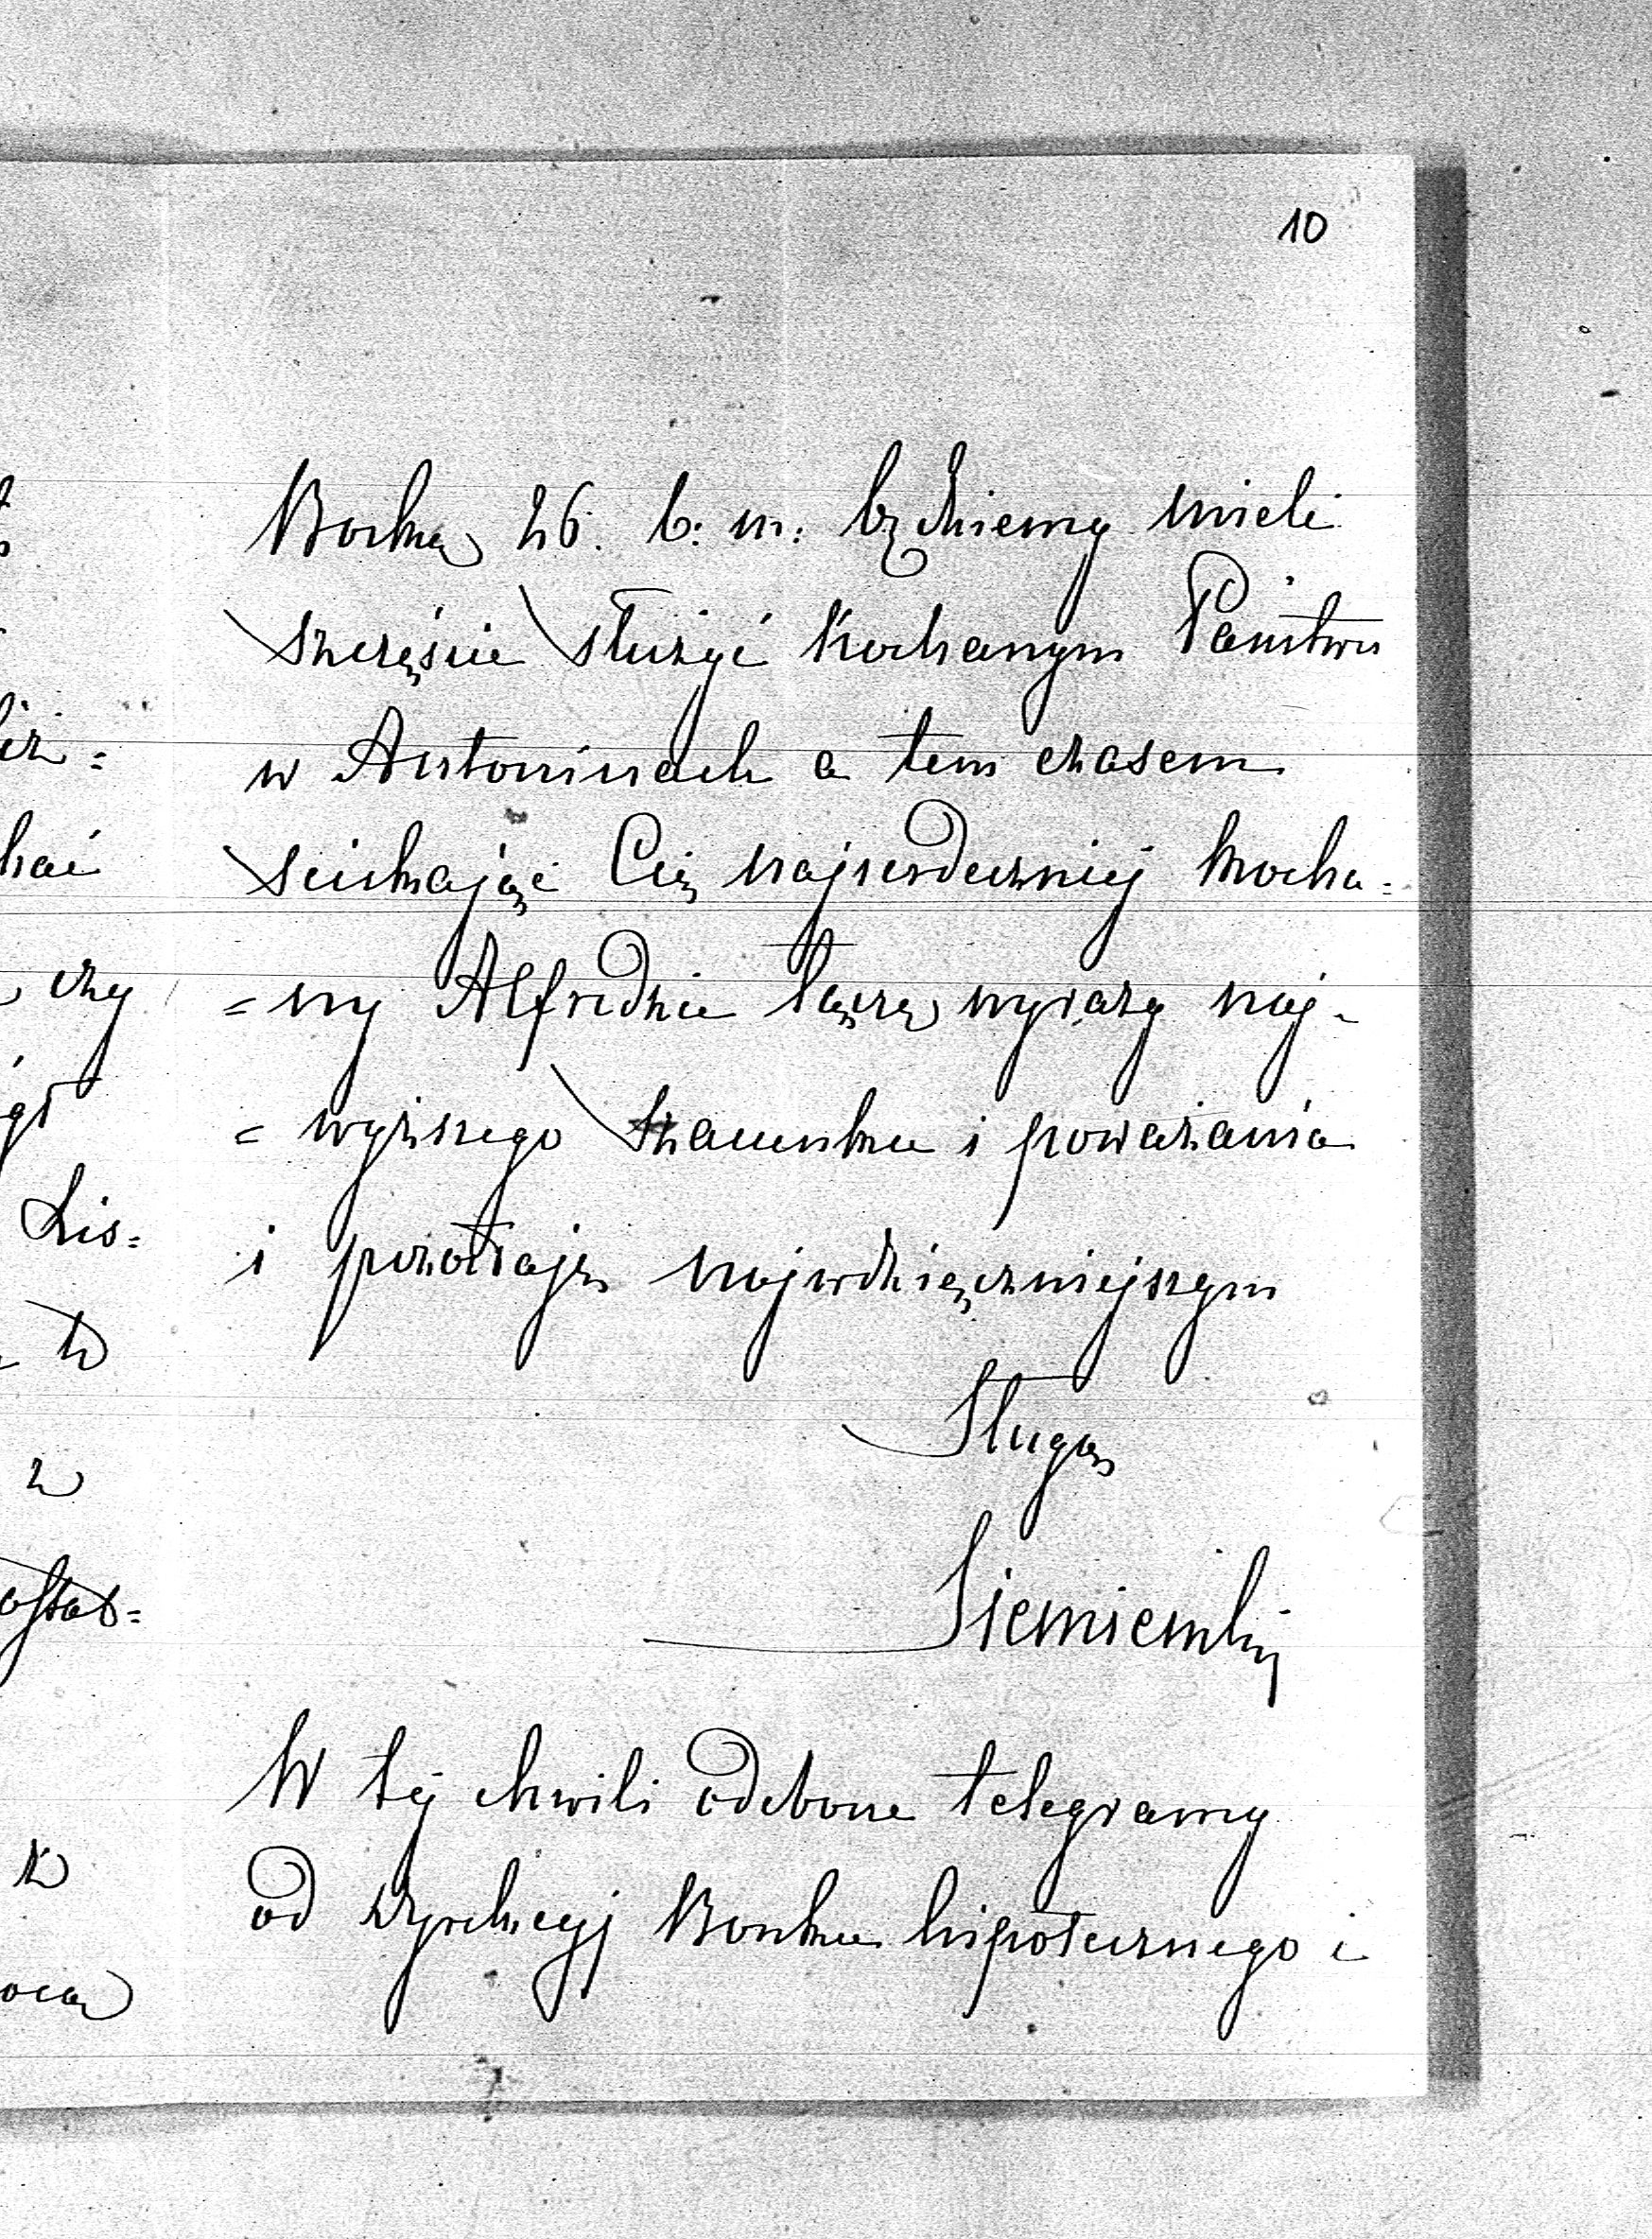 10
Boska 26. b. m. będziemy mieli
szczęście służyć Kochanym Państwu
w Antoninach a tem czasem
ścickając Cię najserdeczniej Kocha=
=ny Alfredzie łączę wyrazy naj=
=wyższego szacunku i poważania
i pozostaję najwdzięczniejszym
Sługą
Siemieński
W tej chwili odebrane telegramy
od Dyrekcyj Banku hipotecznego i